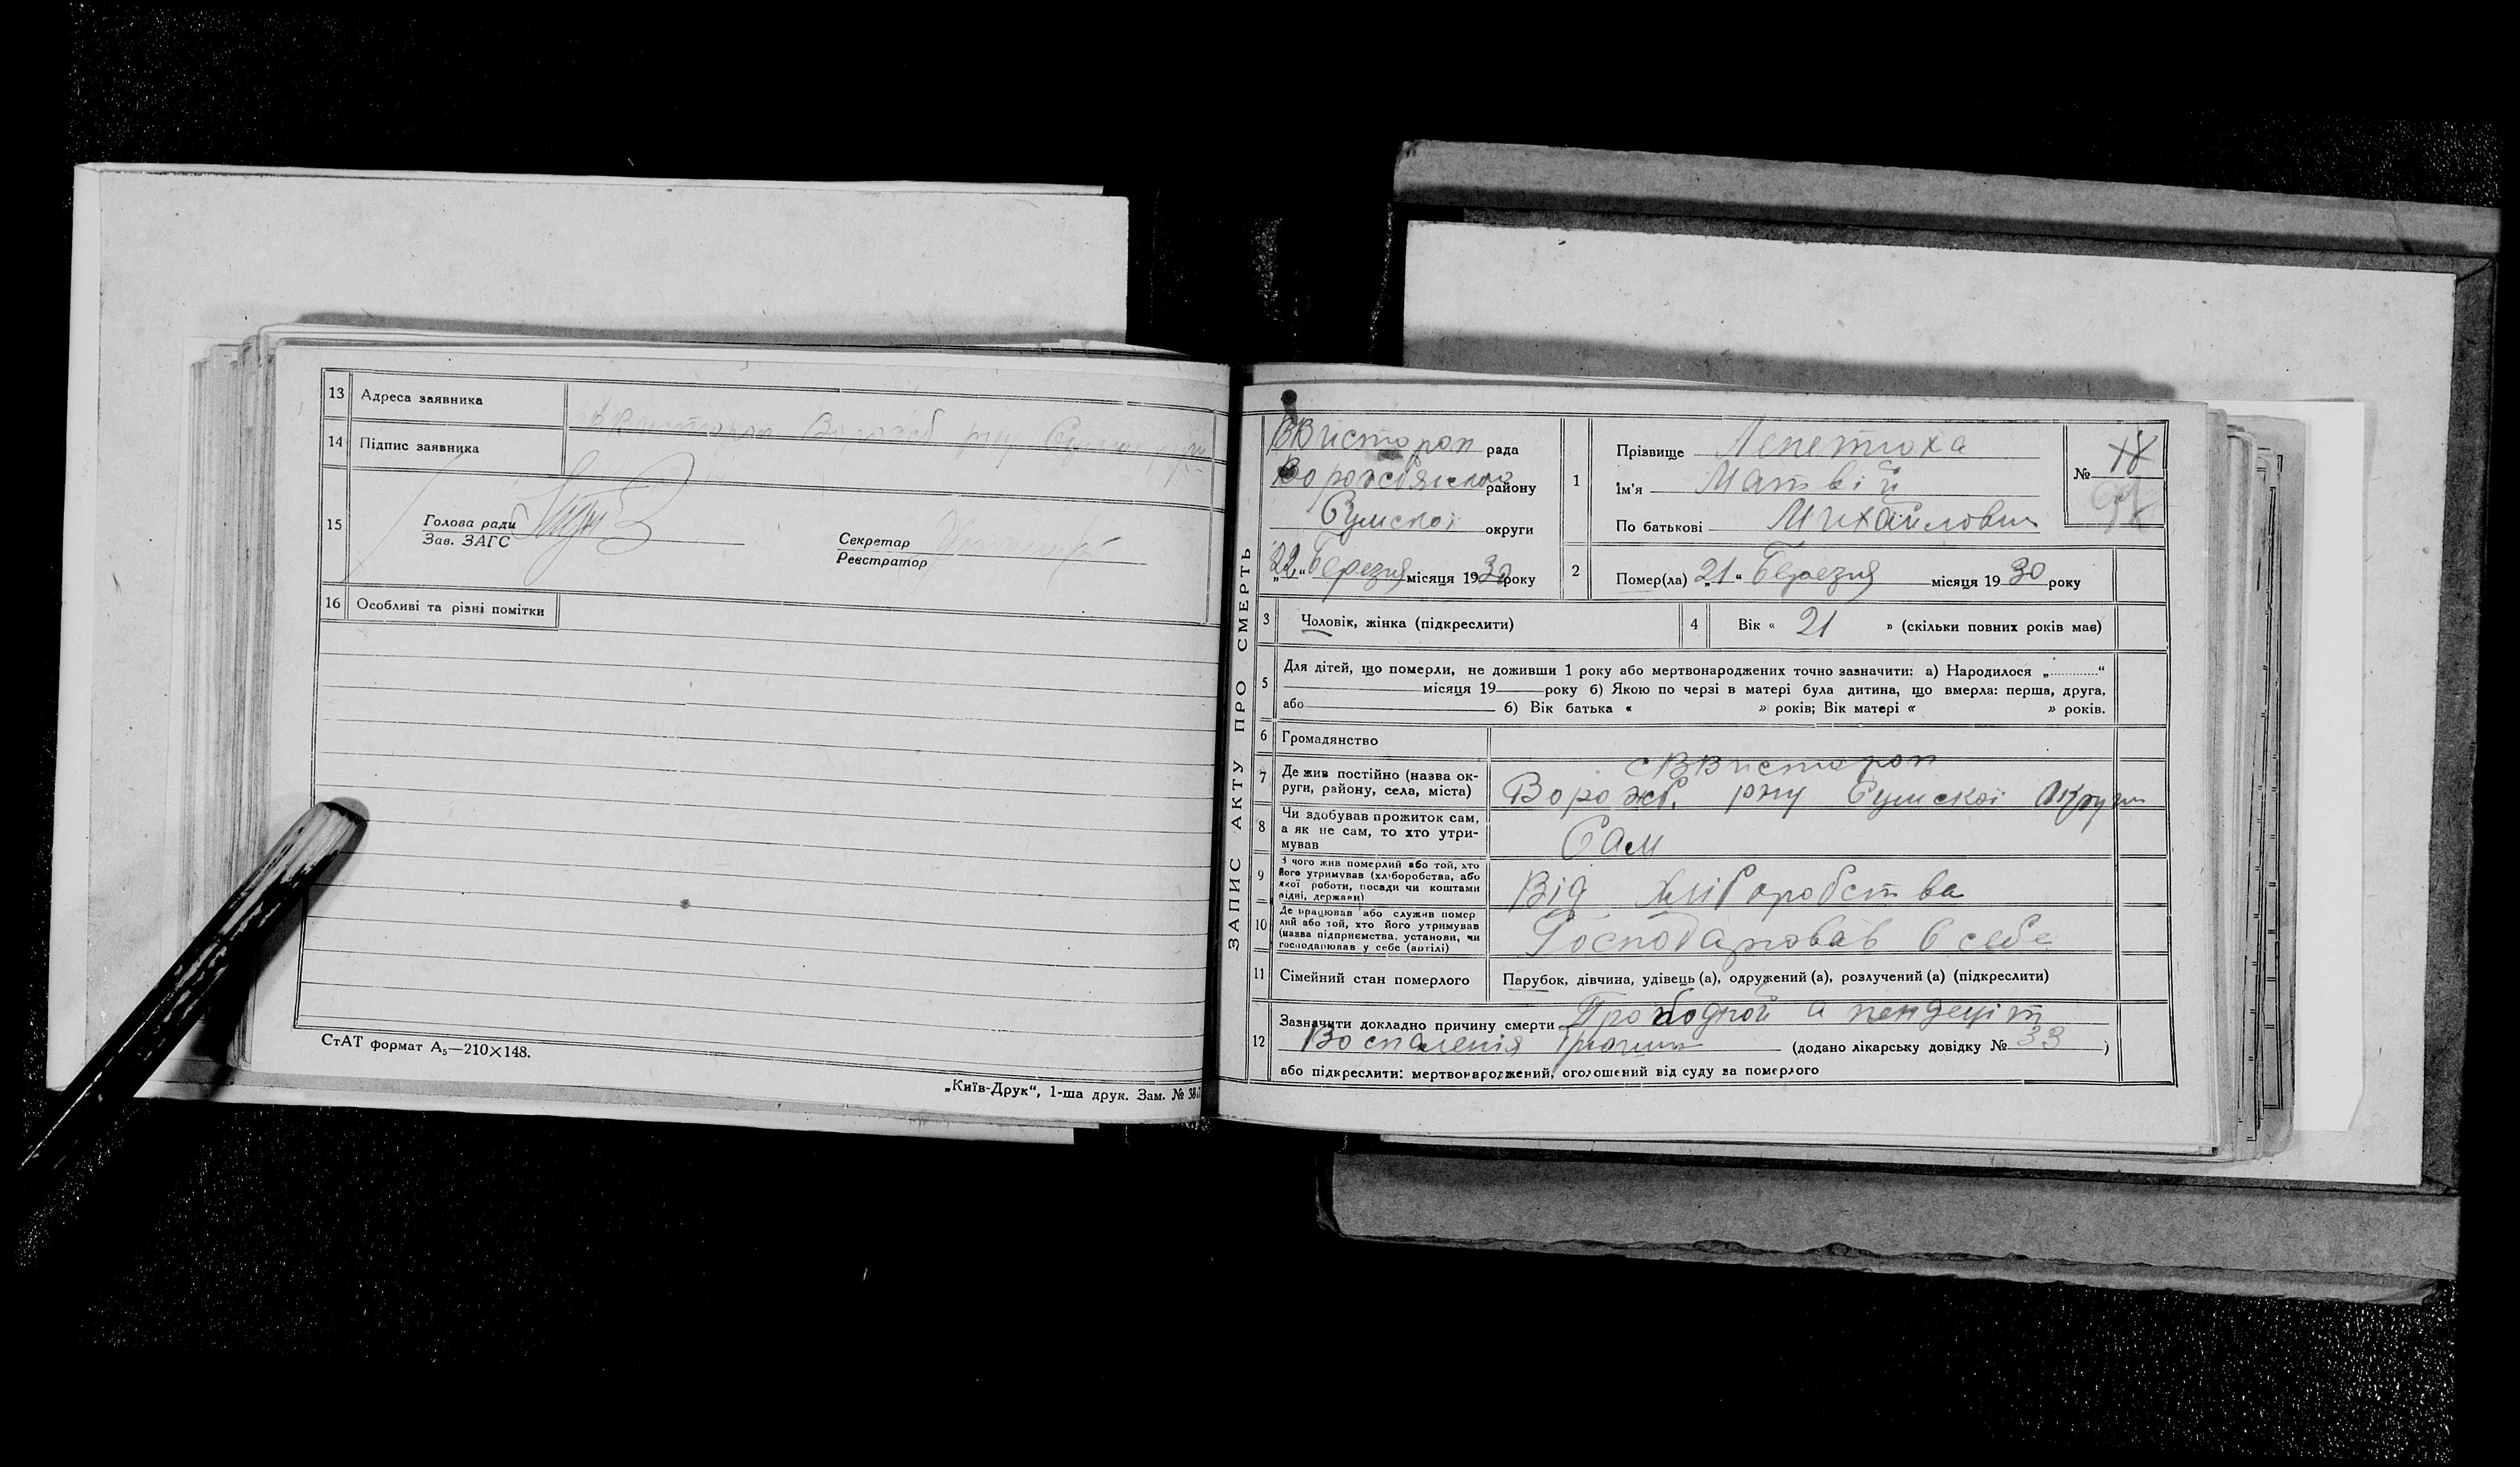 13 Адреса заявника
14 Підпис заявника
15 Голова ради
Зав. ЗАГС
Секретар
Реєстратор
16 Особливі та різні помітки
СтАТ формат А₅—210×148.
„Київ-Друк“, 1-ша друк. Зам. №
ЗАПИС АКТУ ПРО СМЕРТЬ
ВВистороп рада
Ворожбянсково району
Сумскоі округи
„22“ Березня місяця 1930 року
1 Прізвище Лепетюха
Ім'я Матвій
По батькові Михайлович
№ 48
2 Помер(ла) „21“ Березня місяця 1930 року
3 Чоловік, жінка (підкреслити)
4 Вік « 21 » (скільки повних років має)
5 Для дітей, що померли, не доживши 1 року або мертвонароджених точно зазначити: а) Народилося „...........“
місяця 19 року б) Якою по черзі в матері була дитина, що вмерла: перша, друга,
або б) Вік батька « » років; Вік матері « » років.
6 Громадянство
7 Де жив постійно (назва ок-
руги, району, села, міста)
с ВВистороп
Ворожб. рну Сумскоі Округи
8 Чи здобував прожиток сам,
а як не сам, то хто утри-
мував
Сам
9 З чого жив померлий або той, хто
його утримував (хліборобства, або
якої роботи, посади чи коштами
рідні, держави)
Від хліборобства
10 Де працював або служив помер
лий або той, хто його утримував
(назва підприємства, установи, чи
господарював у себе (артілі)
Господарював в себе
11 Сімейний стан померлого
Парубок, дівчина, удівець (а), одружений (а), розлучений (а) (підкреслити)
12 Зазначити докладно причину смерти Прободной апендеціт
Воспаленія (додано лікарську довідку № 33 )
або підкреслити: мертвонароджений, оголошений від суду за померлого